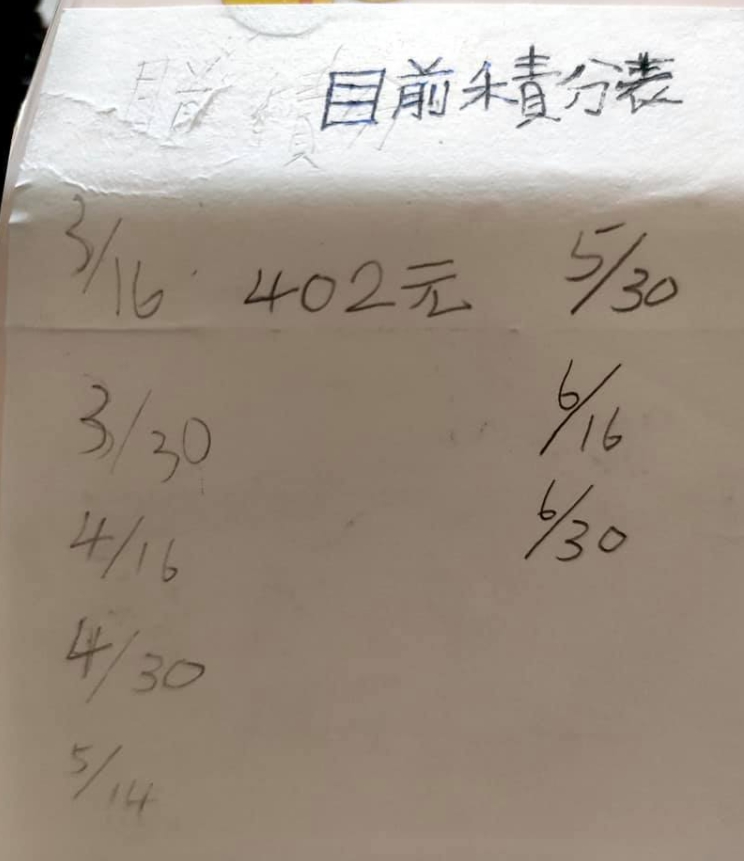 目前積分表
3/16 402元 5/30
3/30 6/16
4/16 6/30
4/30
5/14